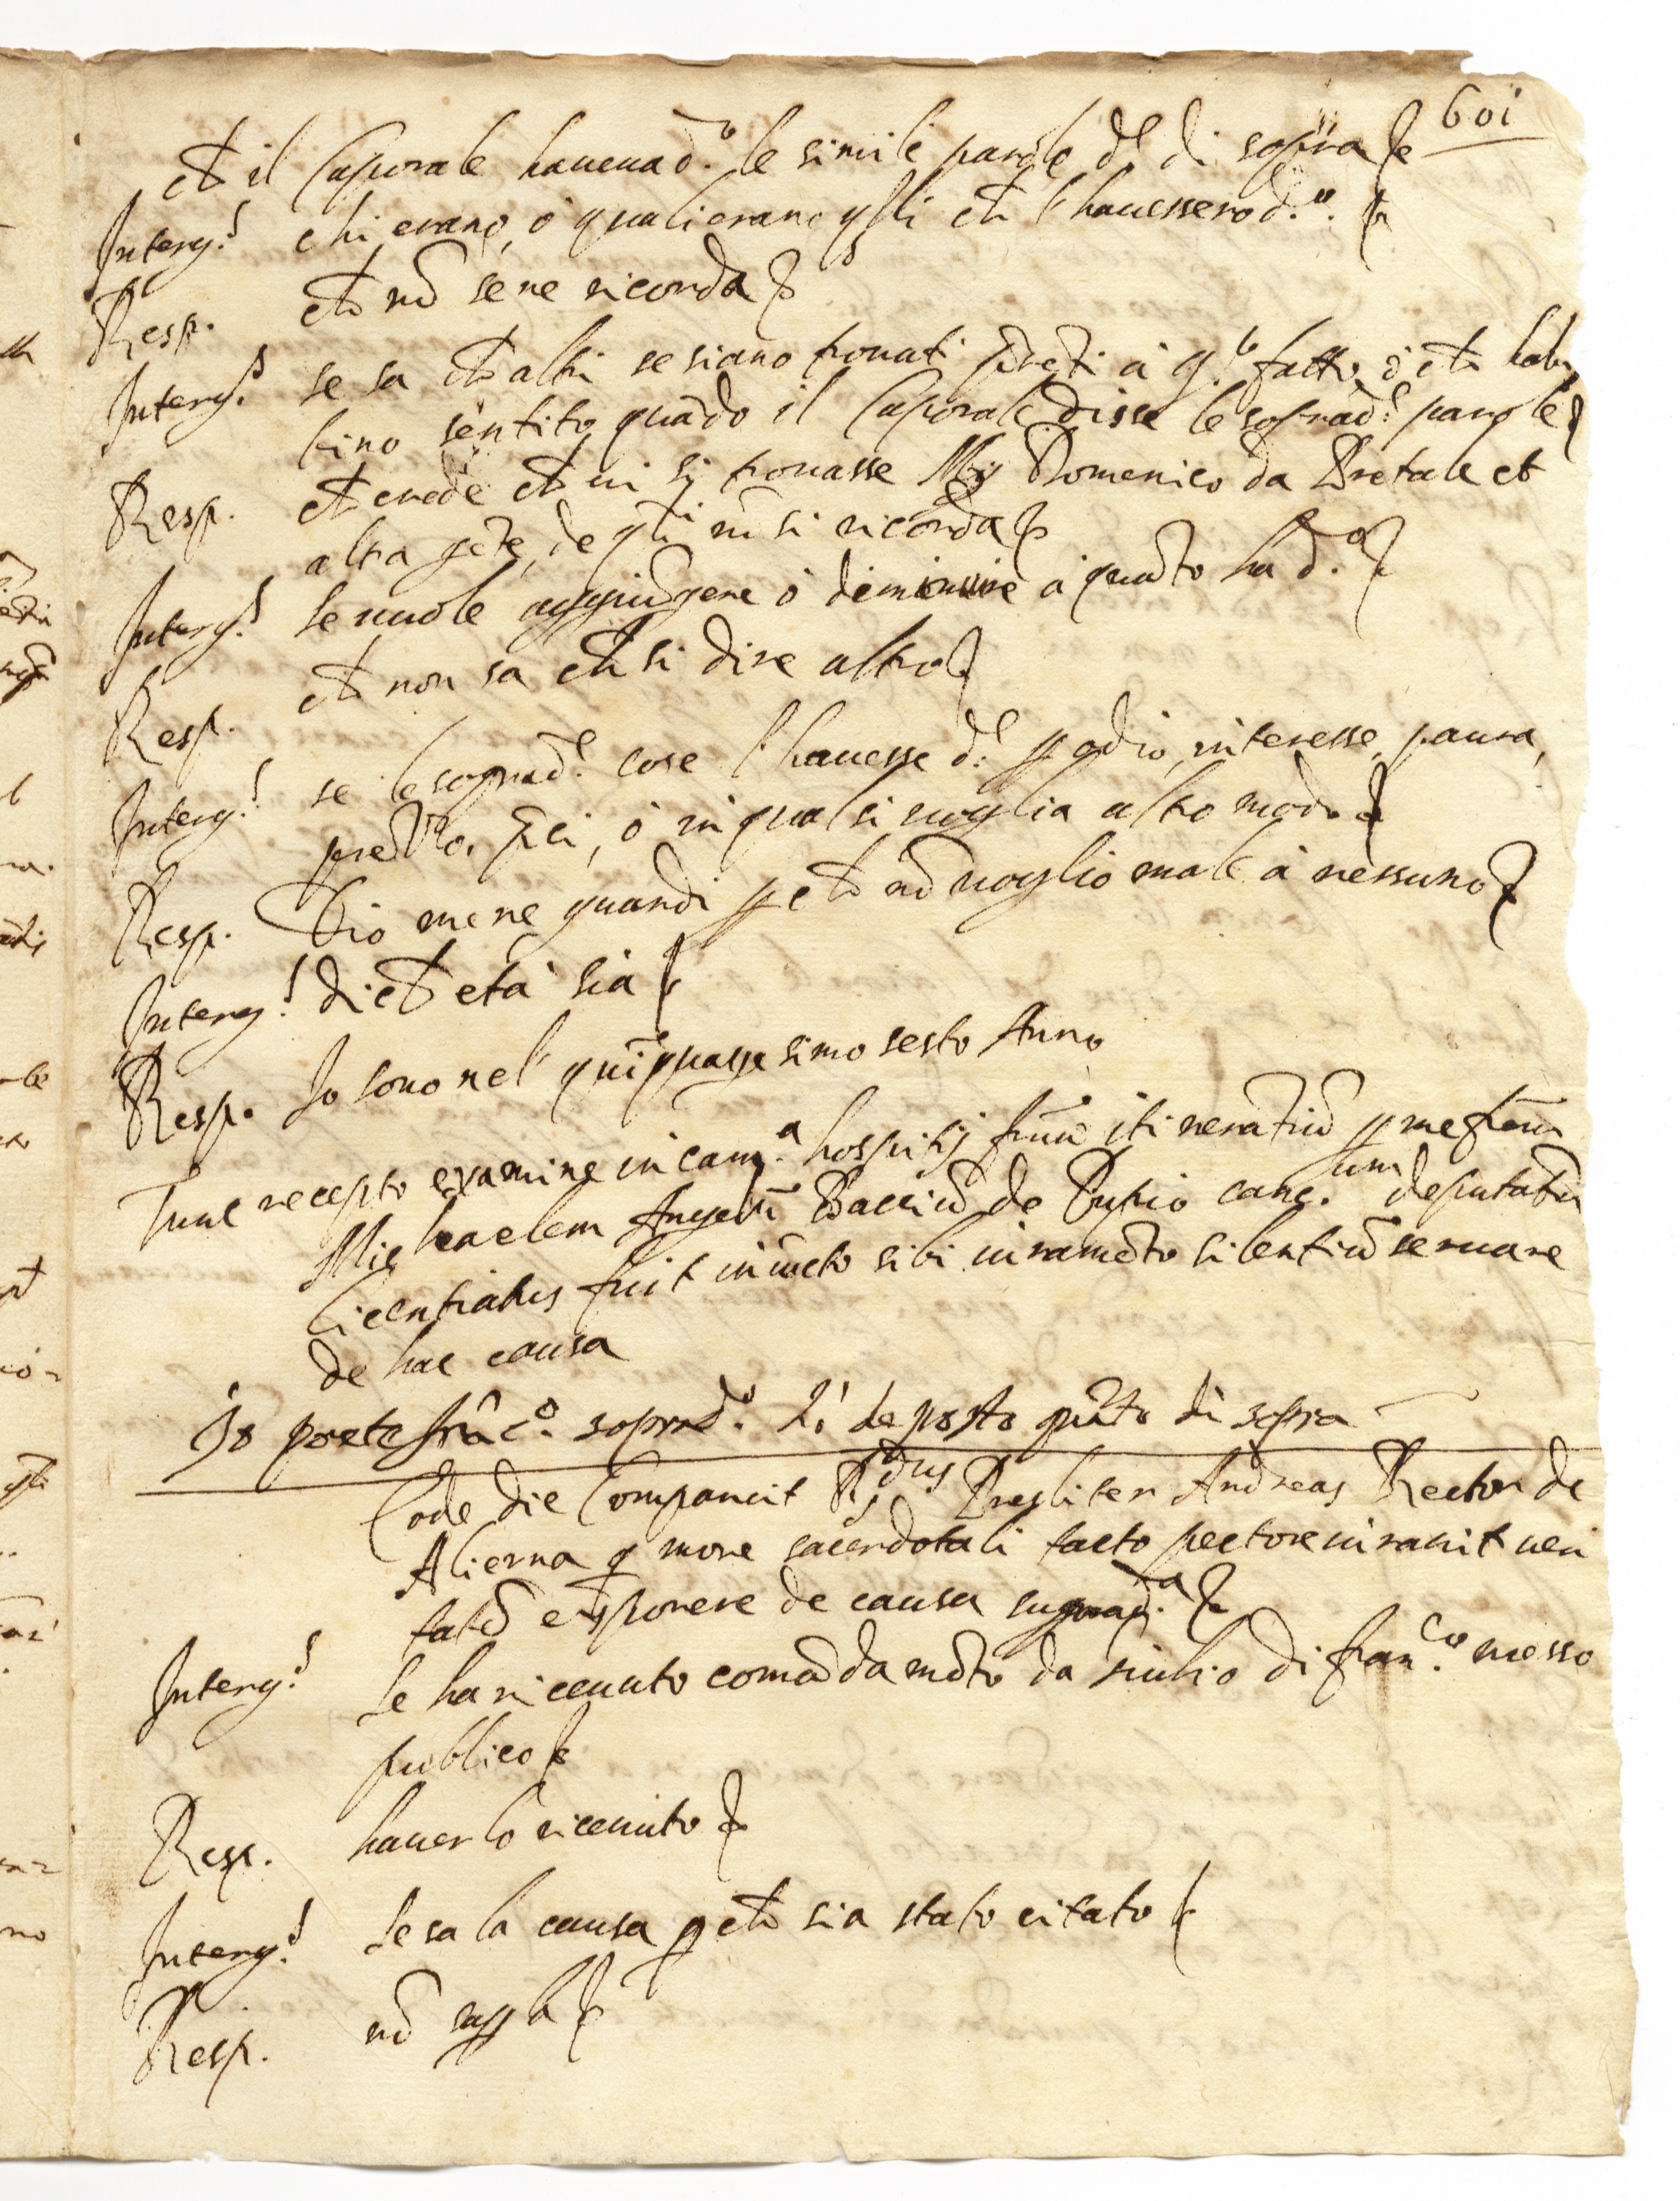 601
ch il Caporale haueua d.º le simile parole d.e di sopra
Interg.s chi erano, ò quali erano q.lli ch l'hauessero d.º
Resp. ch nō se ne ricorda
Interg.s se sa ch altri se siano trouati p̄nti à q.to fatto, ò ch hab
bino sentito quādo il Caporale disse le soprad.e parole
Resp. ch crede ch ui si trouasse Domenico da Pretale et
altra gēte, de q.li nō si ricorda
Interg.s se uuole aggiūgere ò diminuire à quāto ha d.º
Resp. ch non sa ch si dire altro
Interg.s se le soprad.e cose l'hauesse d.e p odio, interesse, paura,
ò in qual si uoglia altro modo
Resp. Dio me ne guardi p ch nō uoglio male à nessuno
Interg.s di ch età sia
Resp. Io sono nel quīquagesimo sesto Anno
Tunc recepto examine in cam.a hospitij itinerātiū p me
Michaelem Angelū Bacciū de Puppio canc.um deputatū
licentiatus fuit iniūcto sibi iuramēto silentiū seruare
de hac causa
Io prete frāc.º soprad.º hò deposto quāto di sopra
Eodē die Comparuit R.dus Presbiter Andreas Rector de
Alierna q more sacerdotali tacto pectore iurauit ueri
tatē exponere de causa suprad.a
Interg.s se ha riceuuto comādamēto da Giulio di fran.co messo
publico
Resp. hauerlo riceuuto
Interg.s se sa la causa p ch sia stato citato
Resp. nō saperla